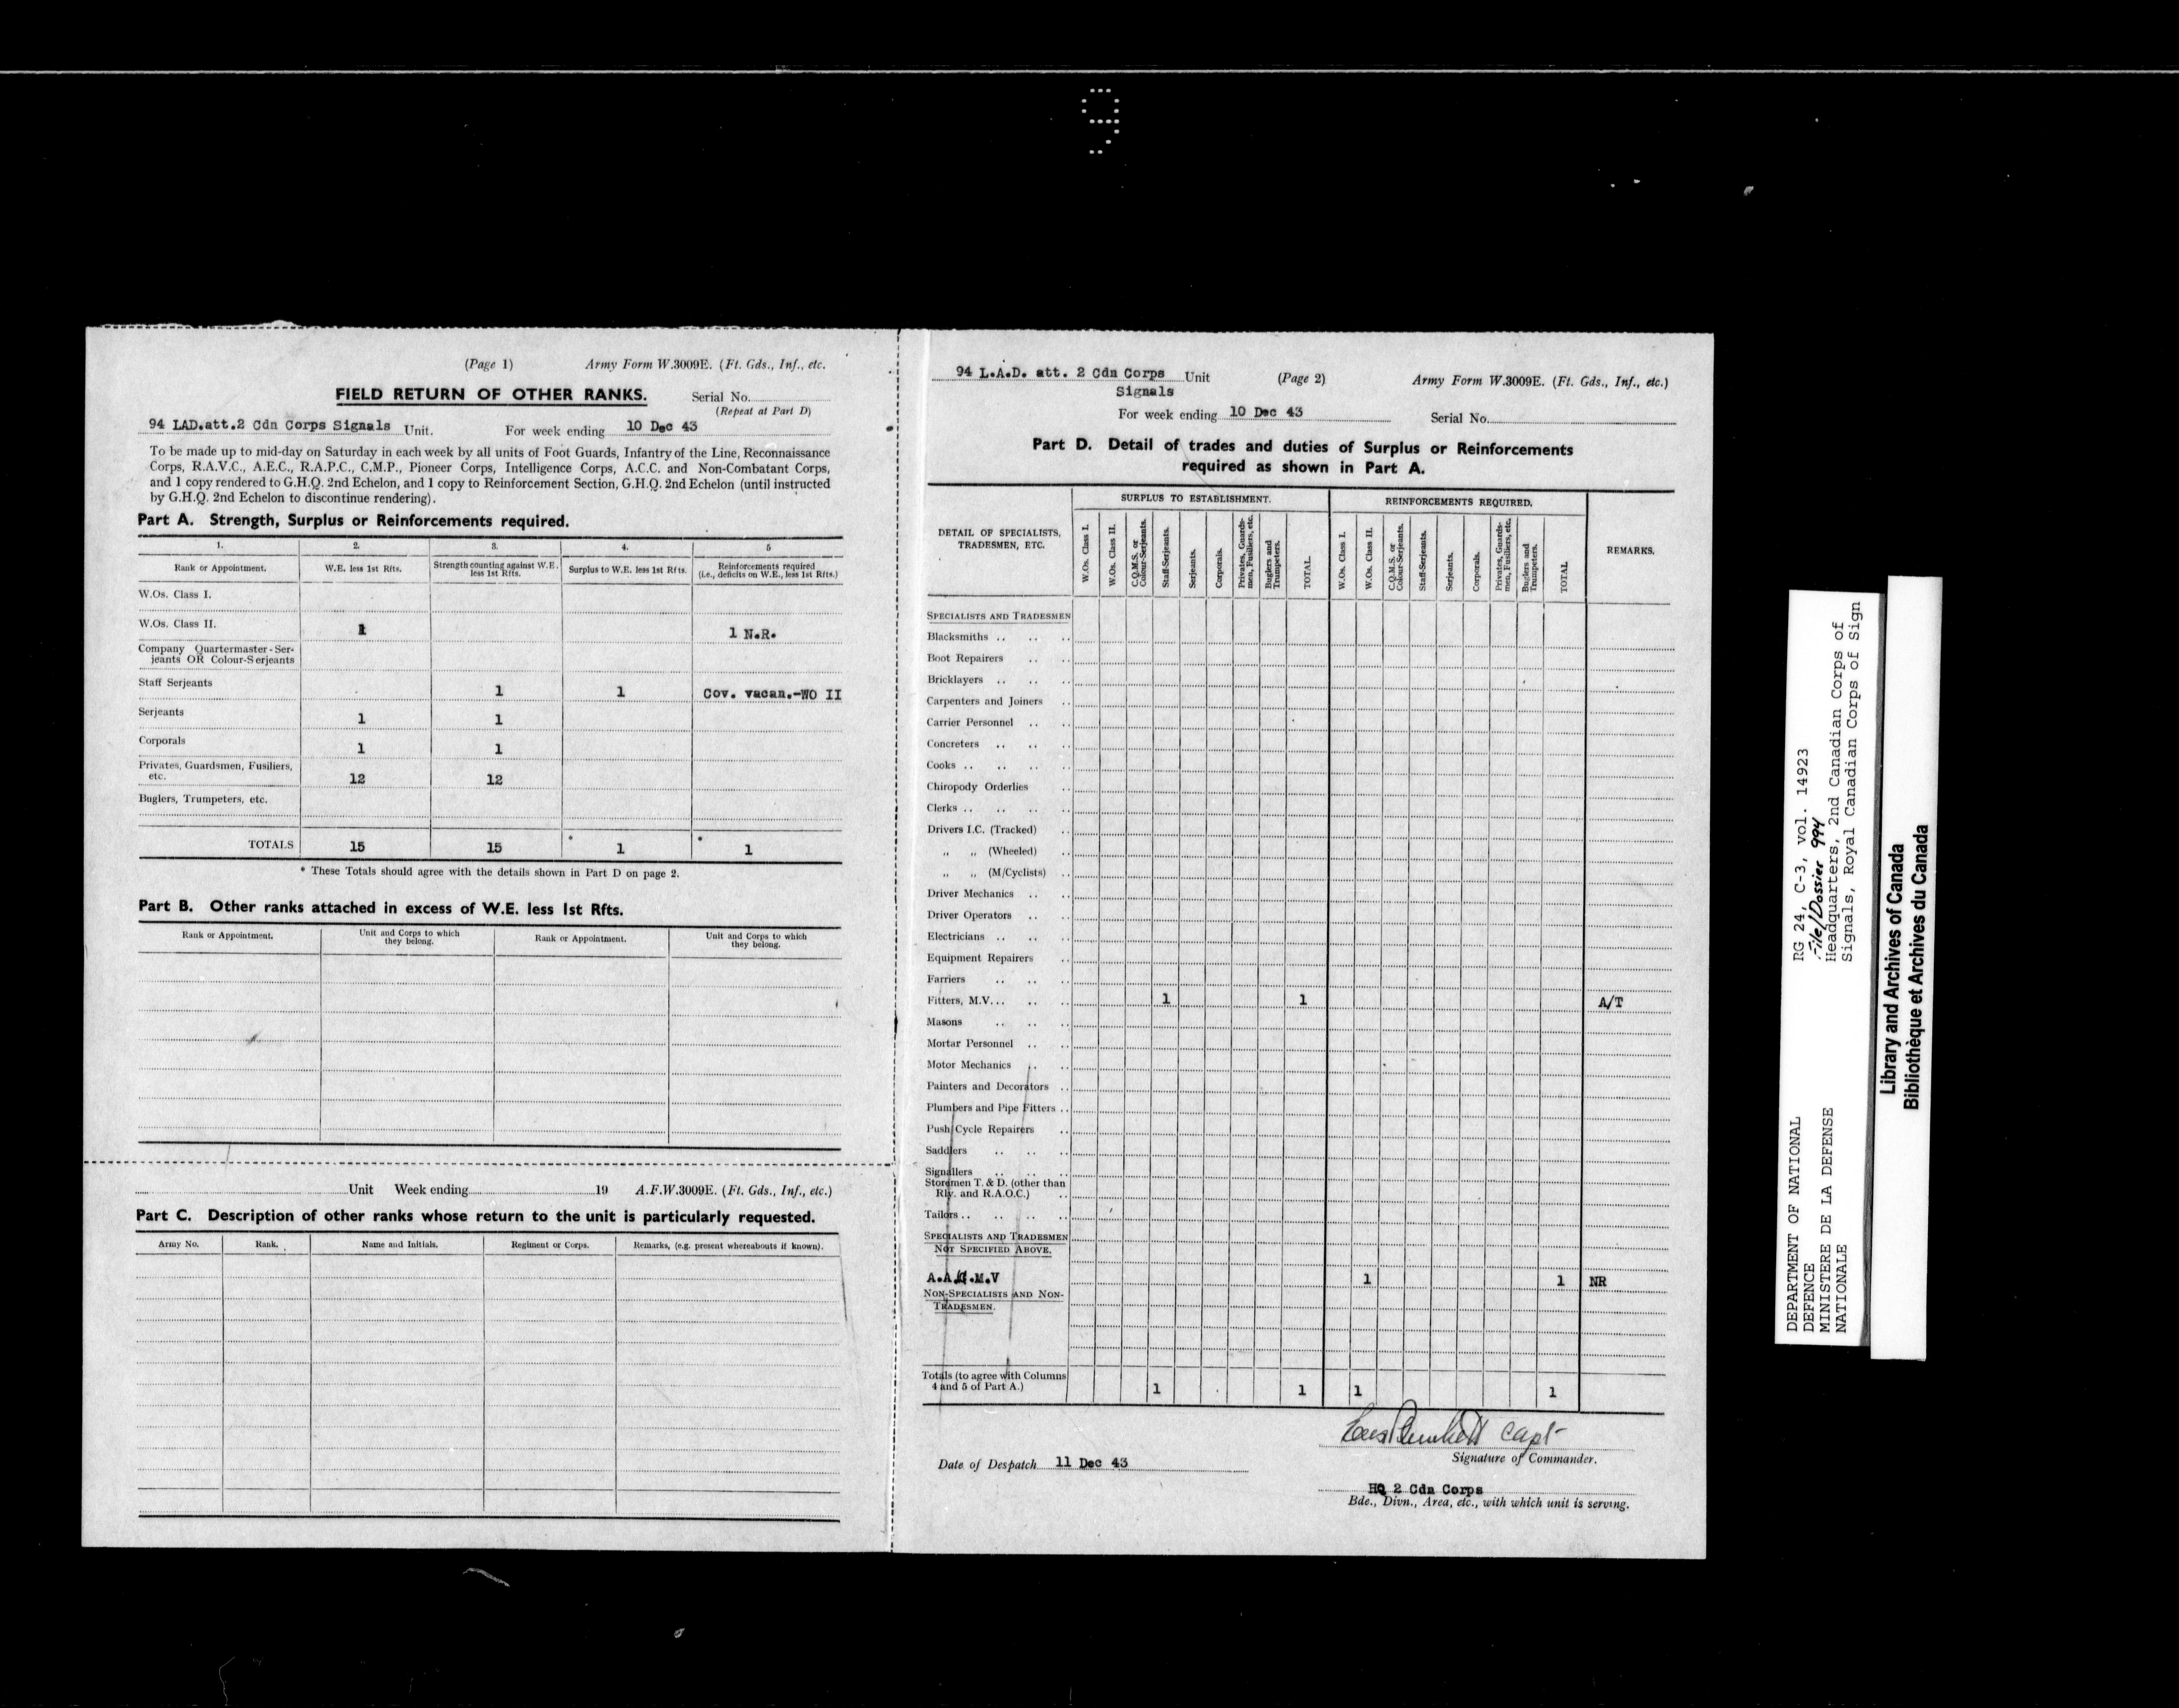 (Page 1) Army Form W.3009E. (Ft. Gds., Inf., etc.
FIELD RETURN OF OTHER RANKS. Serial No.
(Repeat at Part D)
94 LAD.att.2 Cdn Corps Signals Unit. For week ending 10 Dec 43
To be made up to mid-day on Saturday in each week by all units of Foot Guards, Infantry of the Line, Reconnaissance
Corps, R.A.V.C., A.E.C., R.A.P.C., C.M.P., Pioneer Corps, Intelligence Corps, A.C.C. and Non-Combatant Corps,
and 1 copy rendered to G.H.Q. 2nd Echelon, and 1 copy to Reinforcement Section, G.H.Q. 2nd Echelon (until instructed
by G.H.Q. 2nd Echelon to discontinue rendering).
Part A. Strength, Surplus or Reinforcements required.
1. 2. 3. 4. 5
Rank or Appointment. W.E. less 1st Rfts. Strength counting against W.E. less 1st Rfts. Surplus to W.E. less 1st Rfts. Reinforcements required (i.e., deficits on W.E., less 1st Rfts.)
W.Os. Class I.
W.Os. Class II. 1 1 N.R.
Company Quartermaster-Ser-
jeants OR Colour-Serjeants
Staff Serjeants 1 1 Cov. vacan.-WO II
Serjeants 1 1
Corporals 1 1
Privates, Guardsmen, Fusiliers,
etc. 12 12
Buglers, Trumpeters, etc.
TOTALS 15 15 * 1 * 1
* These Totals should agree with the details shown in Part D on page 2.
Part B. Other ranks attached in excess of W.E. less 1st Rfts.
Rank or Appointment. Unit and Corps to which they belong. Rank or Appointment. Unit and Corps to which they belong.
Unit Week ending 19 A.F.W.3009E. (Ft. Gds., Inf., etc.)
Part C. Description of other ranks whose return to the unit is particularly requested.
Army No. Rank. Name and Initials. Regiment or Corps. Remarks, (e.g. present whereabouts if known).
94 L.A.D. att. 2 Cdn Corps Unit (Page 2) Army Form W.3009E. (Ft. Gds., Inf., etc.)
Signals
For week ending 10 Dec 43 Serial No.
Part D. Detail of trades and duties of Surplus or Reinforcements
required as shown in Part A.
DETAIL OF SPECIALISTS, TRADESMEN, ETC. SURPLUS TO ESTABLISHMENT. REINFORCEMENTS REQUIRED. REMARKS.
W.Os. Class I. W.Os. Class II. C.Q.M.S. or Colour-Serjeants. Staff-Serjeants. Serjeants. Corporals. Privates, Guards-men, Fusiliers, etc. Buglers and Trumpeters. TOTAL. W.Os. Class I. W.Os. Class II. C.Q.M.S. or Colour-Serjeants. Staff-Serjeants. Serjeants. Corporals. Privates, Guards-men, Fusiliers, etc. Buglers and Trumpeters. TOTAL
SPECIALISTS AND TRADESMEN
Blacksmiths .. .. ..
Boot Repairers .. ..
Bricklayers .. .. ..
Carpenters and Joiners ..
Carrier Personnel .. ..
Concreters .. .. ..
Cooks .. .. .. ..
Chiropody Orderlies ..
Clerks .. .. .. ..
Drivers I.C. (Tracked) ..
,, ,, (Wheeled) ..
,, ,, (M/Cyclists) ..
Driver Mechanics .. ..
Driver Operators .. ..
Electricians .. .. ..
Equipment Repairers ..
Farriers .. .. ..
Fitters, M.V... .. .. 1 1 A/T
Masons .. .. ..
Mortar Personnel .. ..
Motor Mechanics .. ..
Painters and Decorators ..
Plumbers and Pipe Fitters ..
Push Cycle Repairers ..
Saddlers .. .. ..
Signallers .. .. ..
Storemen T. & D. (other than
Rly. and R.A.O.C.) ..
Tailors .. .. .. ..
SPECIALISTS AND TRADESMEN
NOT SPECIFIED ABOVE.
A.A.Q.M.V 1 1 NR
NON-SPECIALISTS AND NON-
TRADESMEN.
Totals (to agree with Columns
4 and 5 of Part A.) 1 1 1 1
Capt
Signature of Commander.
Date of Despatch 11 Dec 43
HQ 2 Cdn Corps
Bde., Divn., Area, etc., with which unit is serving.
RG 24, C-3, vol. 14923
File/Dossier 994
Headquarters, 2nd Canadian Corps of
Signals, Royal Canadian Corps of Sign
DEPARTMENT OF NATIONAL
DEFENCE
MINISTERE DE LA DEFENSE
NATIONALE
Library and Archives of Canada
Bibliothèque et Archives du Canada